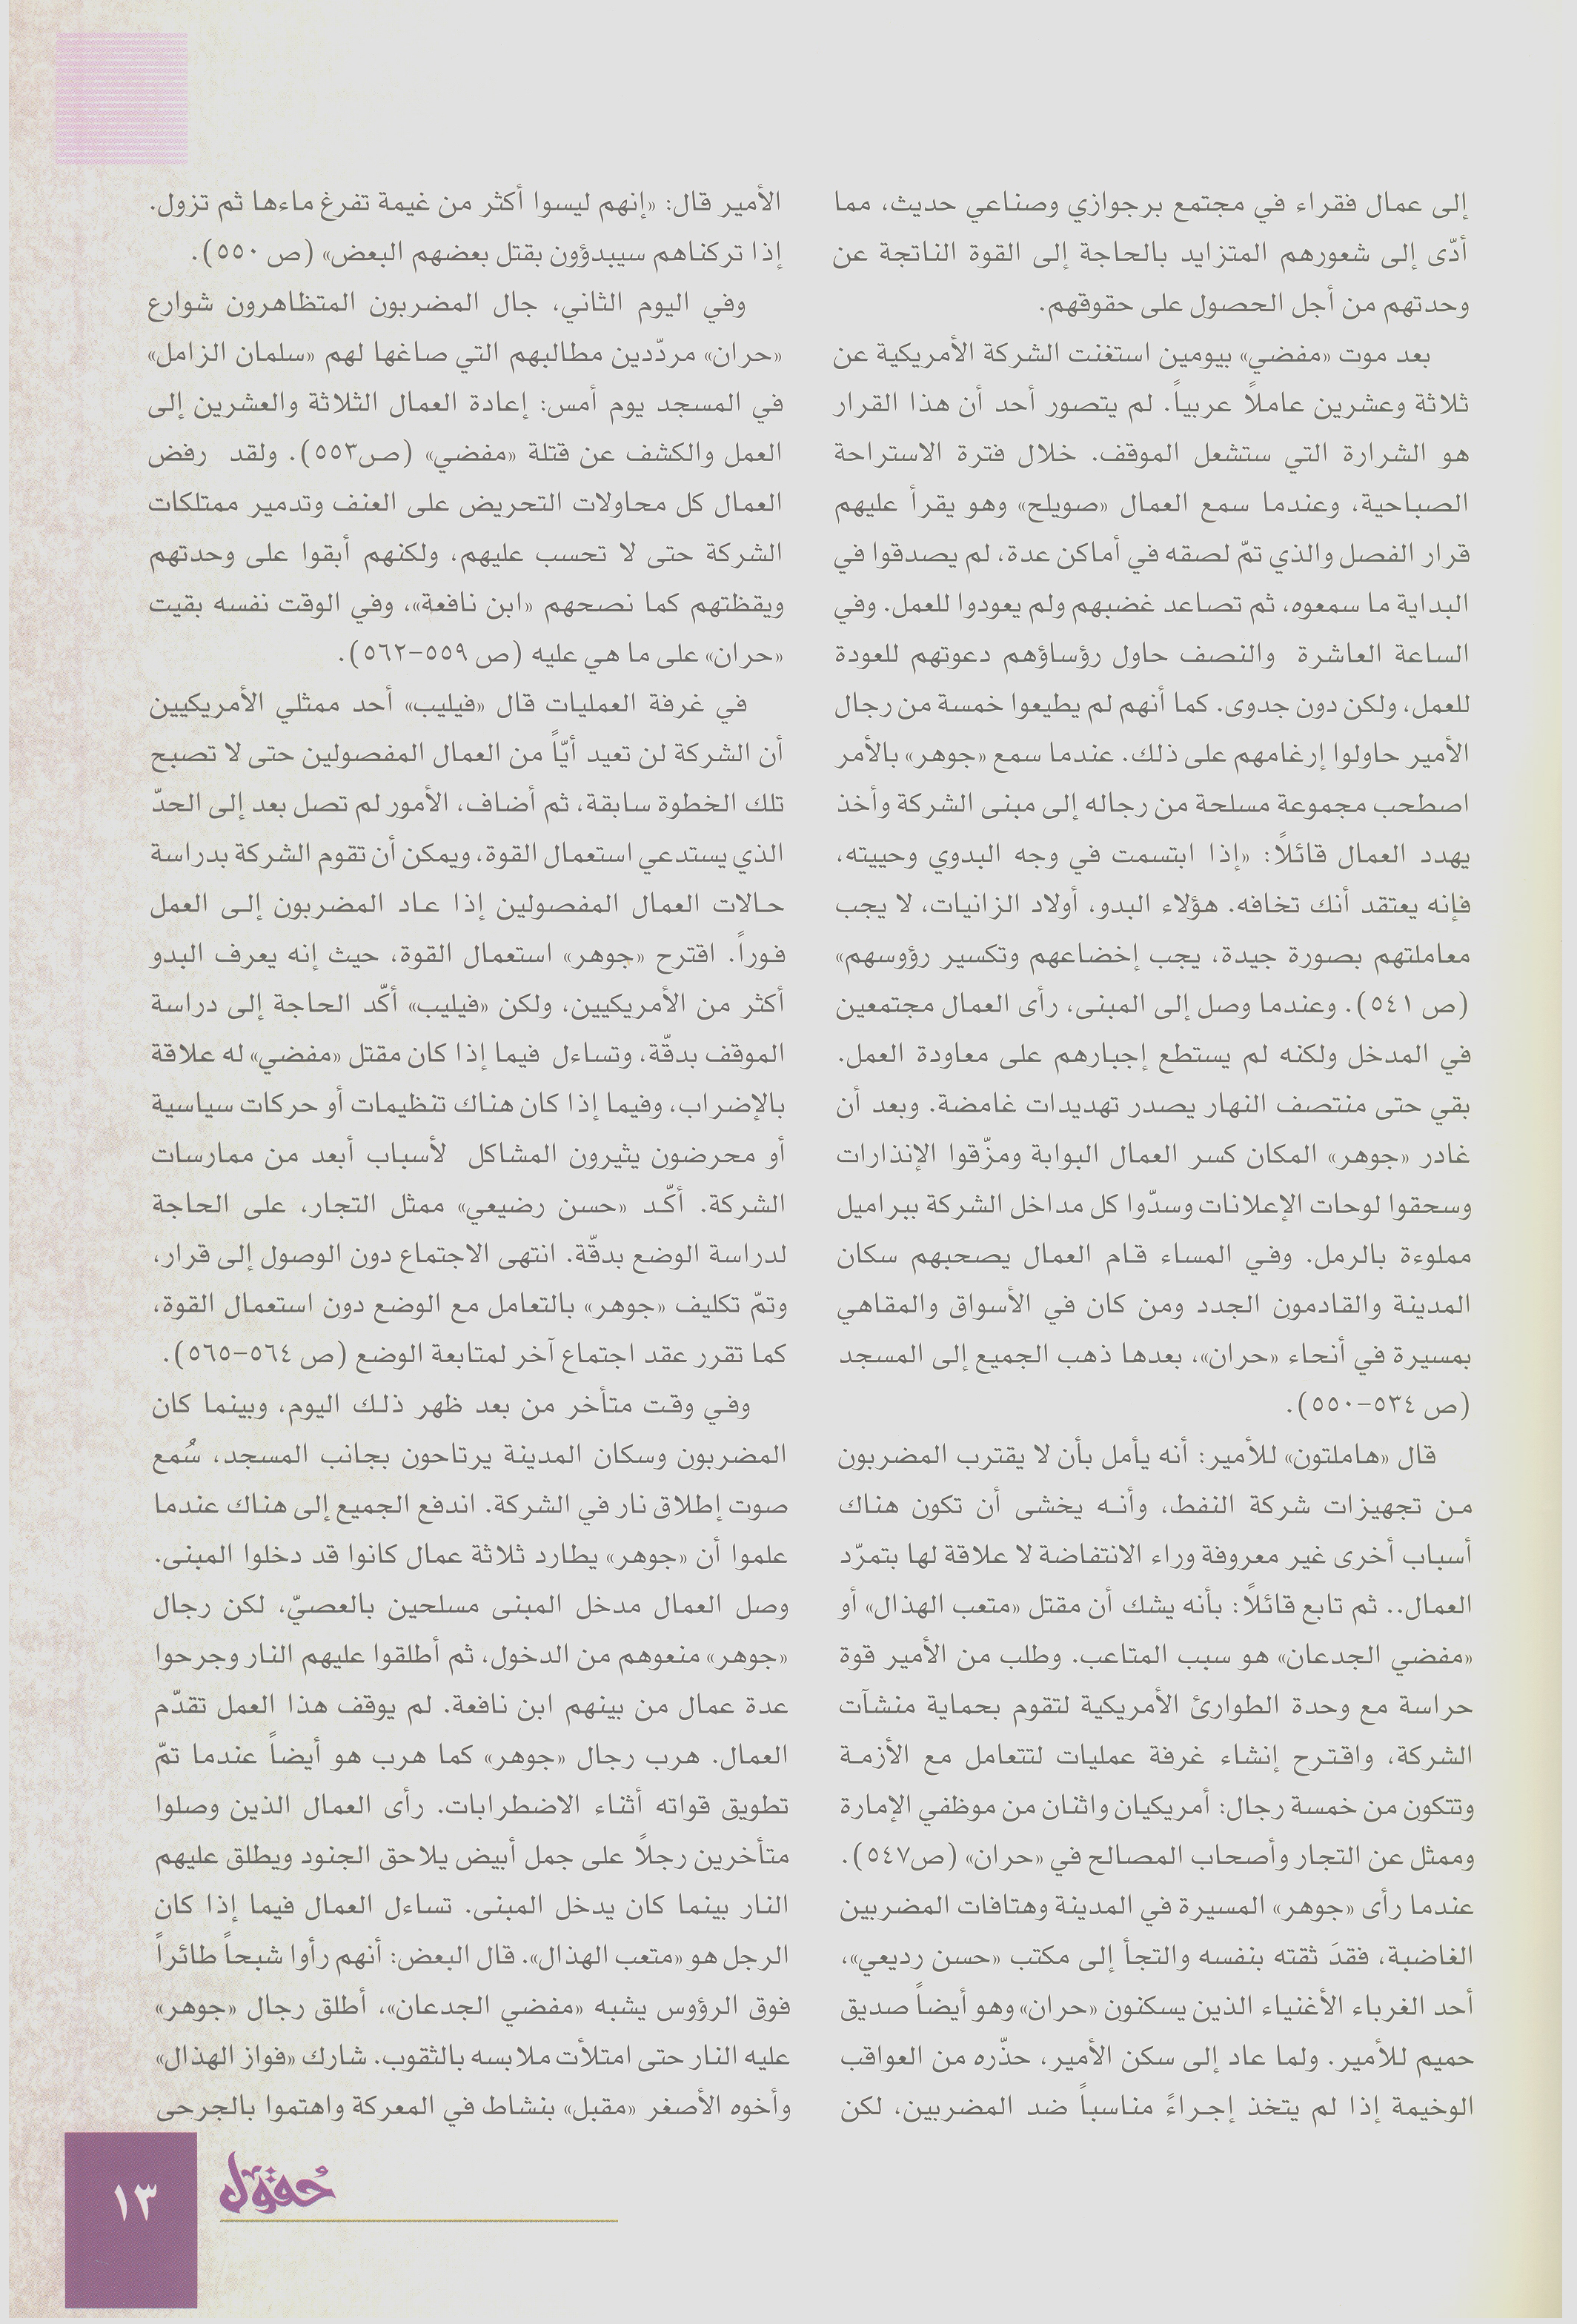 إلى عمال فقراء في مجتمع برجوازي وصناعي حديث، مما
أدّى إلى شعورهم المتزايد بالحاجة إلى القوة الناتجة عن
وحدتهم من أجل الحصول على حقوقهم.
بعد موت «مفضي» بيومين استغنت الشركة الأمريكية عن
ثلاثة وعشرين عاملاً عربياً. لم يتصور أحد أن هذا القرار
هو الشرارة التي ستشعل الموقف. خلال فترة الاستراحة
الصباحية، وعندما سمع العمال «صويلح» وهو يقرأ عليهم
قرار الفصل والذي تمّ لصقه في أماكن عدة، لم يصدقوا في
البداية ما سمعوه، ثم تصاعد غضبهم ولم يعودوا للعمل. وفي
الساعة العاشرة والنصف حاول رؤساؤهم دعوتهم للعودة
للعمل، ولكن دون جدوى. كما أنهم لم يطيعوا خمسة من رجال
الأمير حاولوا إرغامهم على ذلك. عندما سمع «جوهر» بالأمر
اصطحب مجموعة مسلحة من رجاله إلى مبنى الشركة وأخذ
يهدد العمال قائلاً: «إذا ابتسمت في وجه البدوي وحييته،
فإنه يعتقد أنك تخافه. هؤلاء البدو، أولاد الزانيات، لا يجب
معاملتهم بصورة جيدة، يجب إخضاعهم وتكسير رؤوسهم»
(ص ٥٤١). وعندما وصل إلى المبنى، رأى العمال مجتمعين
في المدخل ولكنه لم يستطع إجبارهم على معاودة العمل.
بقي حتى منتصف النهار يصدر تهديدات غامضة. وبعد أن
غادر «جوهر» المكان كسر العمال البوابة ومزّقوا الإنذارات
وسحقوا لوحات الإعلانات وسدّوا كل مداخل الشركة ببراميل
مملوءة بالرمل. وفي المساء قام العمال يصحبهم سكان
المدينة والقادمون الجدد ومن كان في الأسواق والمقاهي
بمسيرة في أنحاء «حران»، بعدها ذهب الجميع إلى المسجد
(ص ٥٣٤-٥٥٠).
قال «هاملتون» للأمير: أنه يأمل بأن لا يقترب المضربون
من تجهيزات شركة النفط، وأنه يخشى أن تكون هناك
أسباب أخرى غير معروفة وراء الانتفاضة لا علاقة لها بتمرّد
العمال.. ثم تابع قائلاً: بأنه يشك أن مقتل «متعب الهذال» أو
«مفضي الجدعان» هو سبب المتاعب. وطلب من الأمير قوة
حراسة مع وحدة الطوارئ الأمريكية لتقوم بحماية منشآت
الشركة، واقترح إنشاء غرفة عمليات لتتعامل مع الأزمة
وتتكون من خمسة رجال: أمريكيان واثنان من موظفي الإمارة
وممثل عن التجار وأصحاب المصالح في «حران» (ص٥٤٧).
عندما رأى «جوهر» المسيرة في المدينة وهتافات المضربين
الغاضبة، فقدَ ثقته بنفسه والتجأ إلى مكتب «حسن رديعي»،
أحد الغرباء الأغنياء الذين يسكنون «حران» وهو أيضاً صديق
حميم للأمير. ولما عاد إلى سكن الأمير، حذّره من العواقب
الوخيمة إذا لم يتخذ إجراءً مناسباً ضد المضربين، لكن
الأمير قال: «إنهم ليسوا أكثر من غيمة تفرغ ماءها ثم تزول.
إذا تركناهم سيبدؤون بقتل بعضهم البعض» (ص ٥٥٠).
وفي اليوم الثاني، جال المضربون المتظاهرون شوارع
«حران» مردّدين مطالبهم التي صاغها لهم «سلمان الزامل»
في المسجد يوم أمس: إعادة العمال الثلاثة والعشرين إلى
العمل والكشف عن قتلة «مفضي» (ص٥٥٣). ولقد رفض
العمال كل محاولات التحريض على العنف وتدمير ممتلكات
الشركة حتى لا تحسب عليهم، ولكنهم أبقوا على وحدتهم
ويقظتهم كما نصحهم «ابن نافعة»، وفي الوقت نفسه بقيت
«حران» على ما هي عليه (ص ٥٥٩-٥٦٢).
في غرفة العمليات قال «فيليب» أحد ممثلي الأمريكيين
أن الشركة لن تعيد أيّاً من العمال المفصولين حتى لا تصبح
تلك الخطوة سابقة، ثم أضاف، الأمور لم تصل بعد إلى الحدّ
الذي يستدعي استعمال القوة، ويمكن أن تقوم الشركة بدراسة
حالات العمال المفصولين إذا عاد المضربون إلى العمل
فوراً. اقترح «جوهر» استعمال القوة، حيث إنه يعرف البدو
أكثر من الأمريكيين، ولكن «فيليب» أكّد الحاجة إلى دراسة
الموقف بدقّة، وتساءل فيما إذا كان مقتل «مفضي» له علاقة
بالإضراب، وفيما إذا كان هناك تنظيمات أو حركات سياسية
أو محرضون يثيرون المشاكل لأسباب أبعد من ممارسات
الشركة. أكّد «حسن رضيعي» ممثل التجار، على الحاجة
لدراسة الوضع بدقّة. انتهى الاجتماع دون الوصول إلى قرار،
وتمّ تكليف «جوهر» بالتعامل مع الوضع دون استعمال القوة،
كما تقرر عقد اجتماع آخر لمتابعة الوضع (ص ٥٦٤-٥٦٥).
وفي وقت متأخر من بعد ظهر ذلك اليوم، وبينما كان
المضربون وسكان المدينة يرتاحون بجانب المسجد، سُمع
صوت إطلاق نار في الشركة. اندفع الجميع إلى هناك عندما
علموا أن «جوهر» يطارد ثلاثة عمال كانوا قد دخلوا المبنى.
وصل العمال مدخل المبنى مسلحين بالعصيّ، لكن رجال
«جوهر» منعوهم من الدخول، ثم أطلقوا عليهم النار وجرحوا
عدة عمال من بينهم ابن نافعة. لم يوقف هذا العمل تقدّم
العمال. هرب رجال «جوهر» كما هرب هو أيضاً عندما تمّ
تطويق قواته أثناء الاضطرابات. رأى العمال الذين وصلوا
متأخرين رجلاً على جمل أبيض يلاحق الجنود ويطلق عليهم
النار بينما كان يدخل المبنى. تساءل العمال فيما إذا كان
الرجل هو «متعب الهذال». قال البعض: أنهم رأوا شبحاً طائراً
فوق الرؤوس يشبه «مفضي الجدعان»، أطلق رجال «جوهر»
عليه النار حتى امتلأت ملابسه بالثقوب. شارك «فواز الهذال»
وأخوه الأصغر «مقبل» بنشاط في المعركة واهتموا بالجرحى
حُقول
١٣